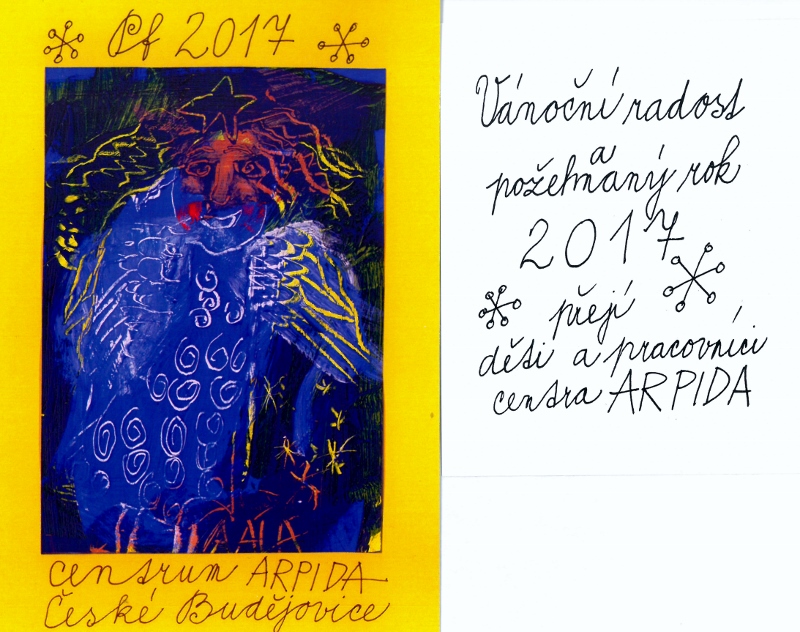 Pf 2017
centrum ARPIDA
České Budějovice
Vánoční radost
a
požehnaný rok
2017
přejí
děti a pracovníci
centra ARPIDA